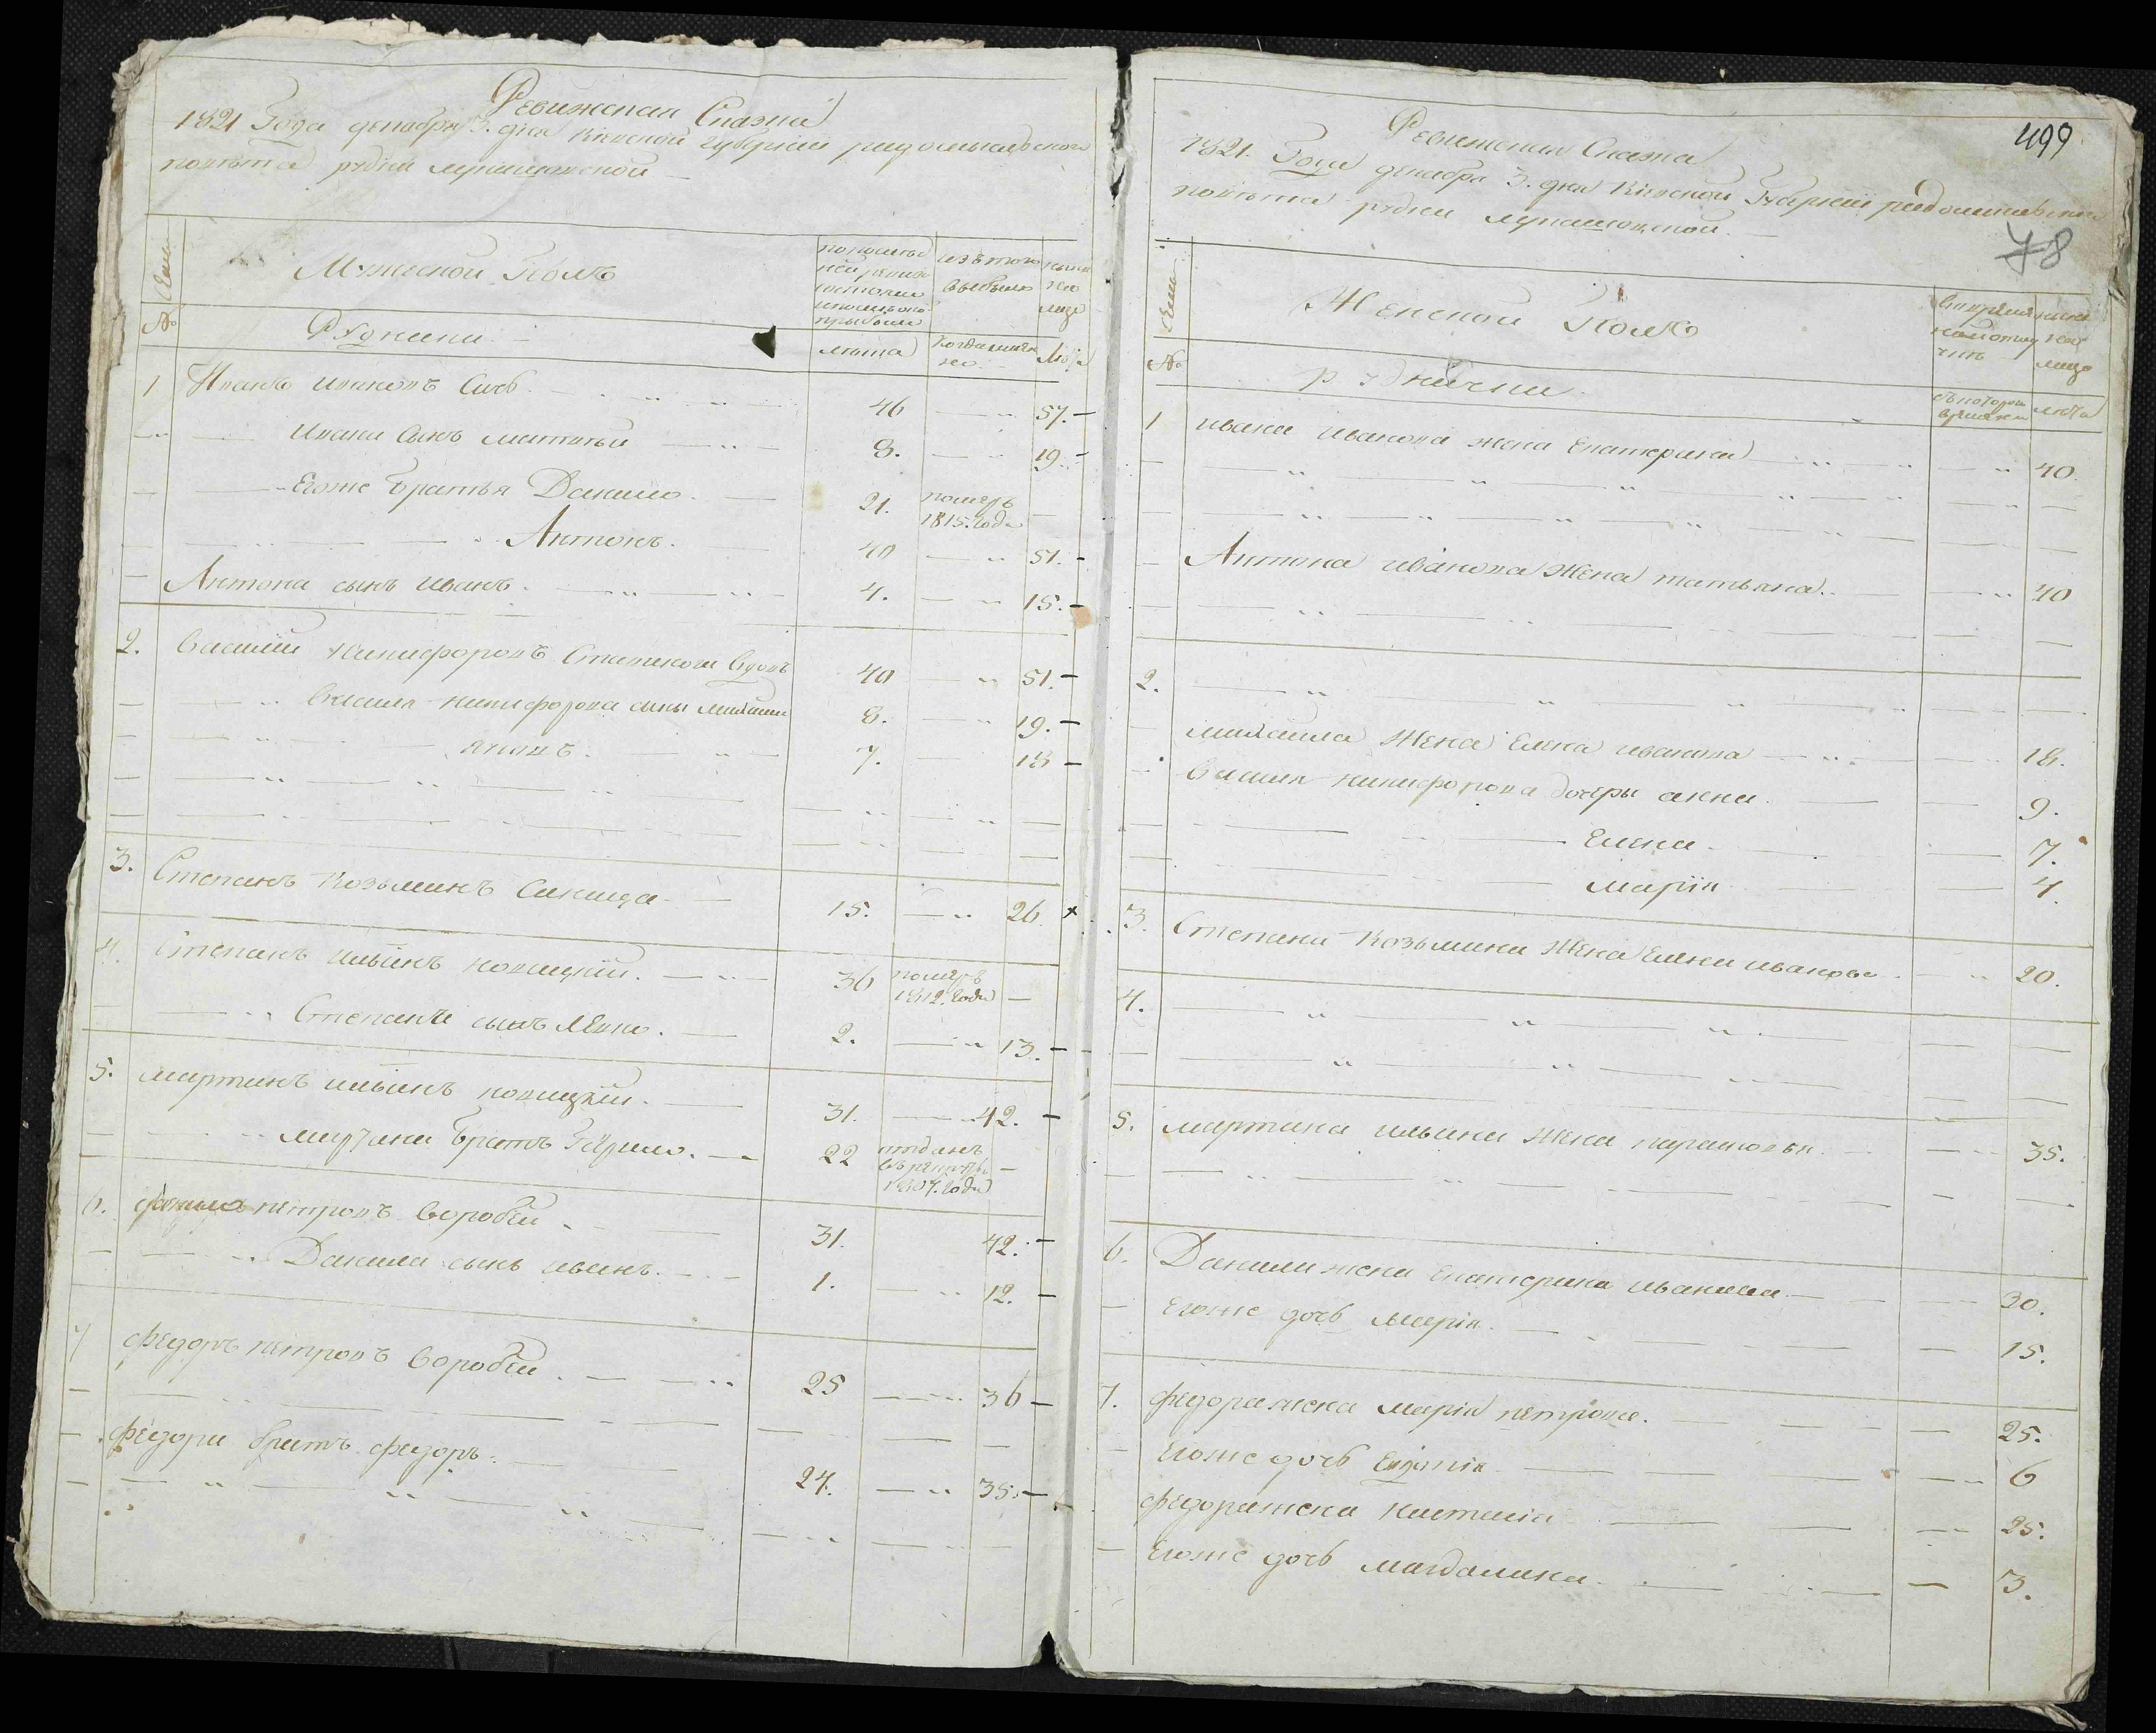 Ревижская Сказка
1821 Года декабря 3. дня Киевской Губернии радомысльского
повета рудни лупишовской
Семи
Мужеской Полъ
по последней ревизии состояло и после оной прибыло
изъ того выбыло
ныне на лицо
№
Рудники
лета
Когда именно
Лета
1 Иванъ Ивановъ Сичъ 46 57.
Ивана Сынъ Матвей 8. 19.
Егоже братья Данило 21. померъ 1815. Года
Антонъ. 40 51.
Антона сынъ Иванъ. 4. 15.
2. Василий Никифоровъ вдовъ 40 51.
Василя Никифорова сыны Михайло 8. 19.
Яковъ. 7. 18
3. Степанъ Козьминъ 15. 26
4. Степанъ Ильинъ новицкий. 36 померъ 1812. Года
Степана сынъ 2. 13.
5. Мартинъ Ильинъ новицкий. 31. 42.
Мартина братъ Гаврило. 22 отданъ въ рекруты 1807. Года
6. Данило петровъ Воробей 31. 42.
Данила сынъ Иванъ. 1. 12.
7 Федоръ петровъ Воробей. 25 36
Федора братъ Федоръ. 24. 35.
499
78
Ревижская Сказка
1821. Года декабра 3. дня Киевской Губернии радомысльского
повета рудни лупашовской.
Семи
Женской Полъ
Во временной отлучке
ныне на лицо
№
руднички
Съ которого времени
лета
1 Ивана Иванова жена Екатерина 40.
Антона Иванова Жена татьяна. 40
2.
Михаила Жена Елена Иванова 18.
Василя Никифорова дочеры анна. 9.
Елена 7.
Мария 4.
3. Степана Козьмина Жена Елена Иванова 20.
4.
5. Мартина Ильина Жена парасковья 35.
6. Данила жена Екатерина Иванова 30.
Егоже дочь Мария. 15.
7. Федора жена Мария петрова. 25.
Егоже дочь Евдокия 6
Федора жена Настасия 25.
Егоже дочь Магдалина. 3.